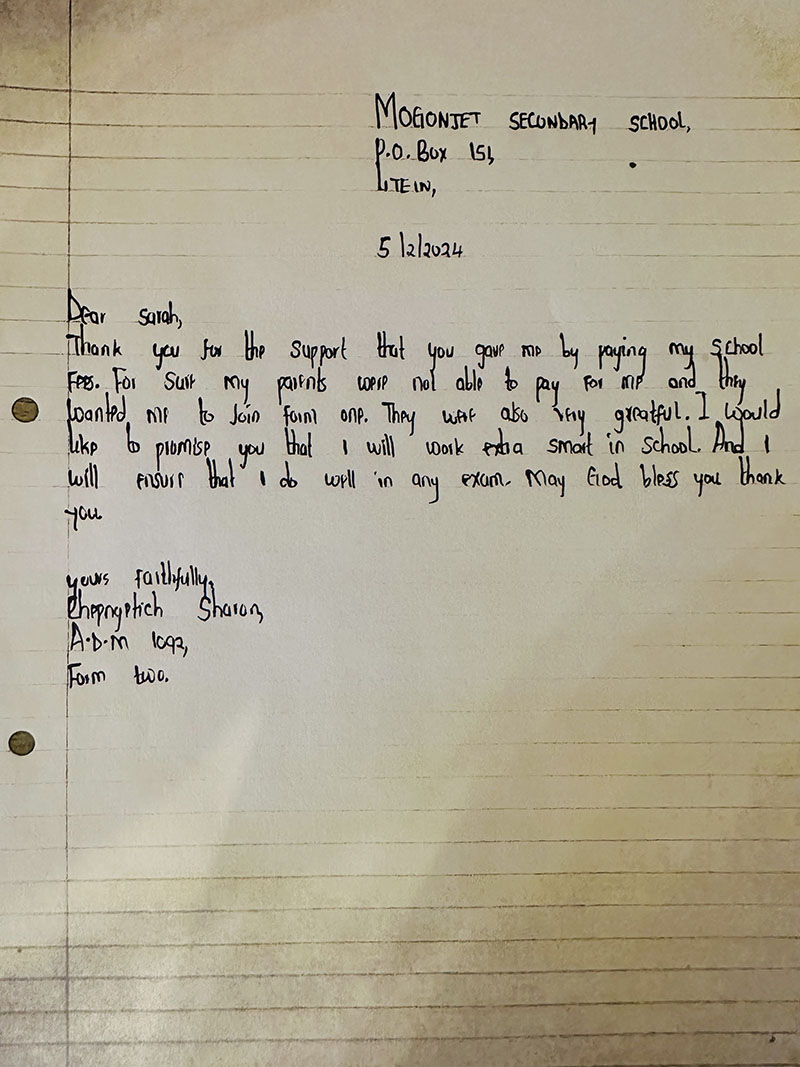 MOGONJET SECONDARY SCHOOL,
P.O. Box 151,
LITEIN,
5/2/2024
Dear Sarah,
Thank you for the support that you gave me by paying my school
fees. For sure my parents were not able to pay for me and they
wanted me to join form one. They were also very greatful. I would
like to promise you that I will work extra smart in school. And I
will ensure that I do well in any exam. May God bless you thank
you.
yours faithfully,
Chepngetich Sharon,
A.D.M 1092,
Form two.